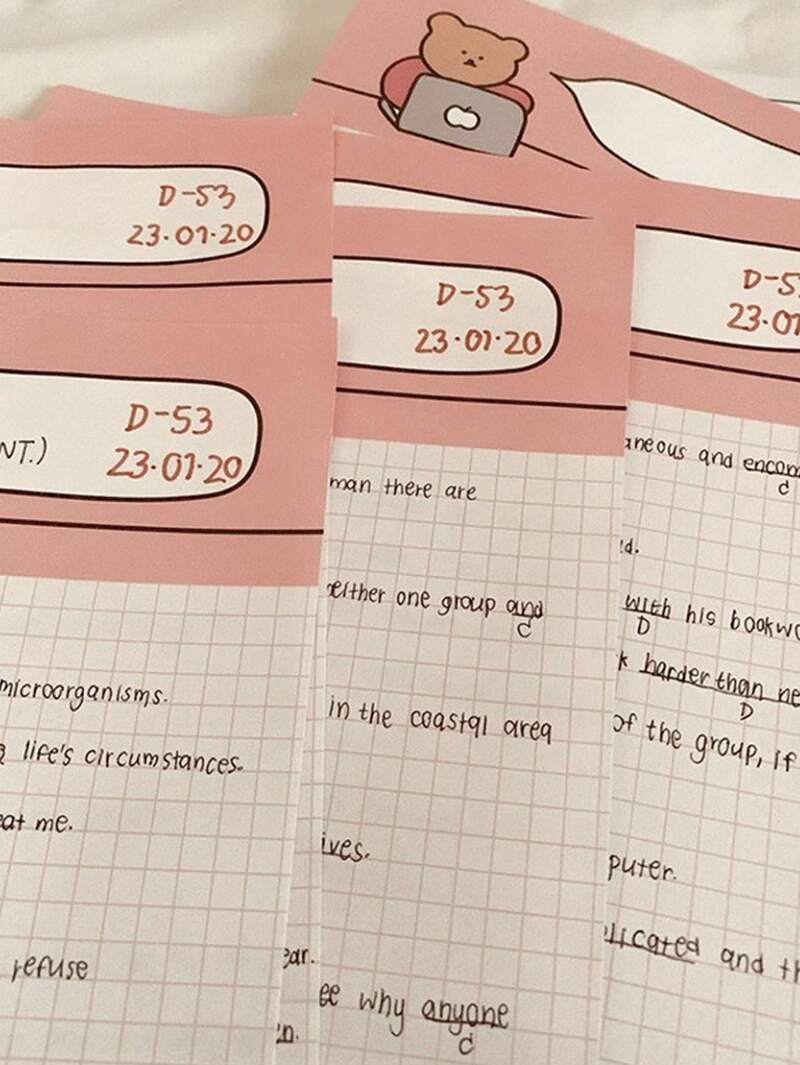 D-53
23.01.20
D-53
23.01.20
NT.)
microorganisms.
life's circumstances.
eat me.
refuse
D-53
23.01.20
man there are
either one group and
C
in the coastal area
ives.
ear.
ee why anyone
C
D-5
23.01
aneous and encom
C
with his bookwo
D
harder than ne
D
of the group, if
puter.
licated and th